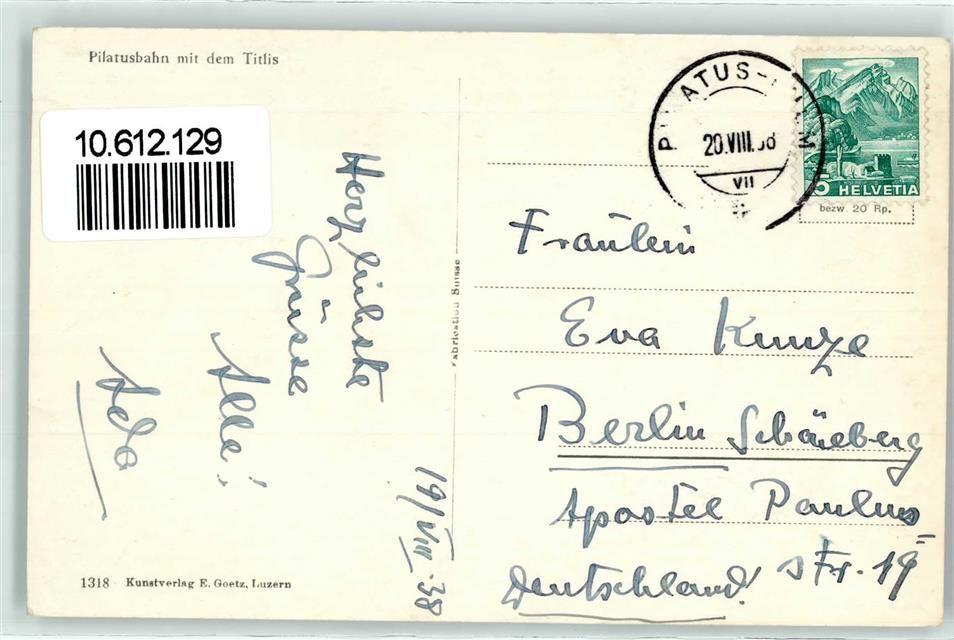 Pilatusbahn mit dem Titlis
10.612.129
PILATUS-KULM
20.VIII.38
VII
5 HELVETIA
bezw. 20 Rp.
Herzlichste
Grüsse
Alle!
19/VIII 38
Fabrication Suisse
Fräulein
Eva Kunze
Berlin Schöneberg
Apostel Paulus
Str. 19
Deutschland
1318 Kunstverlag E. Goetz, Luzern